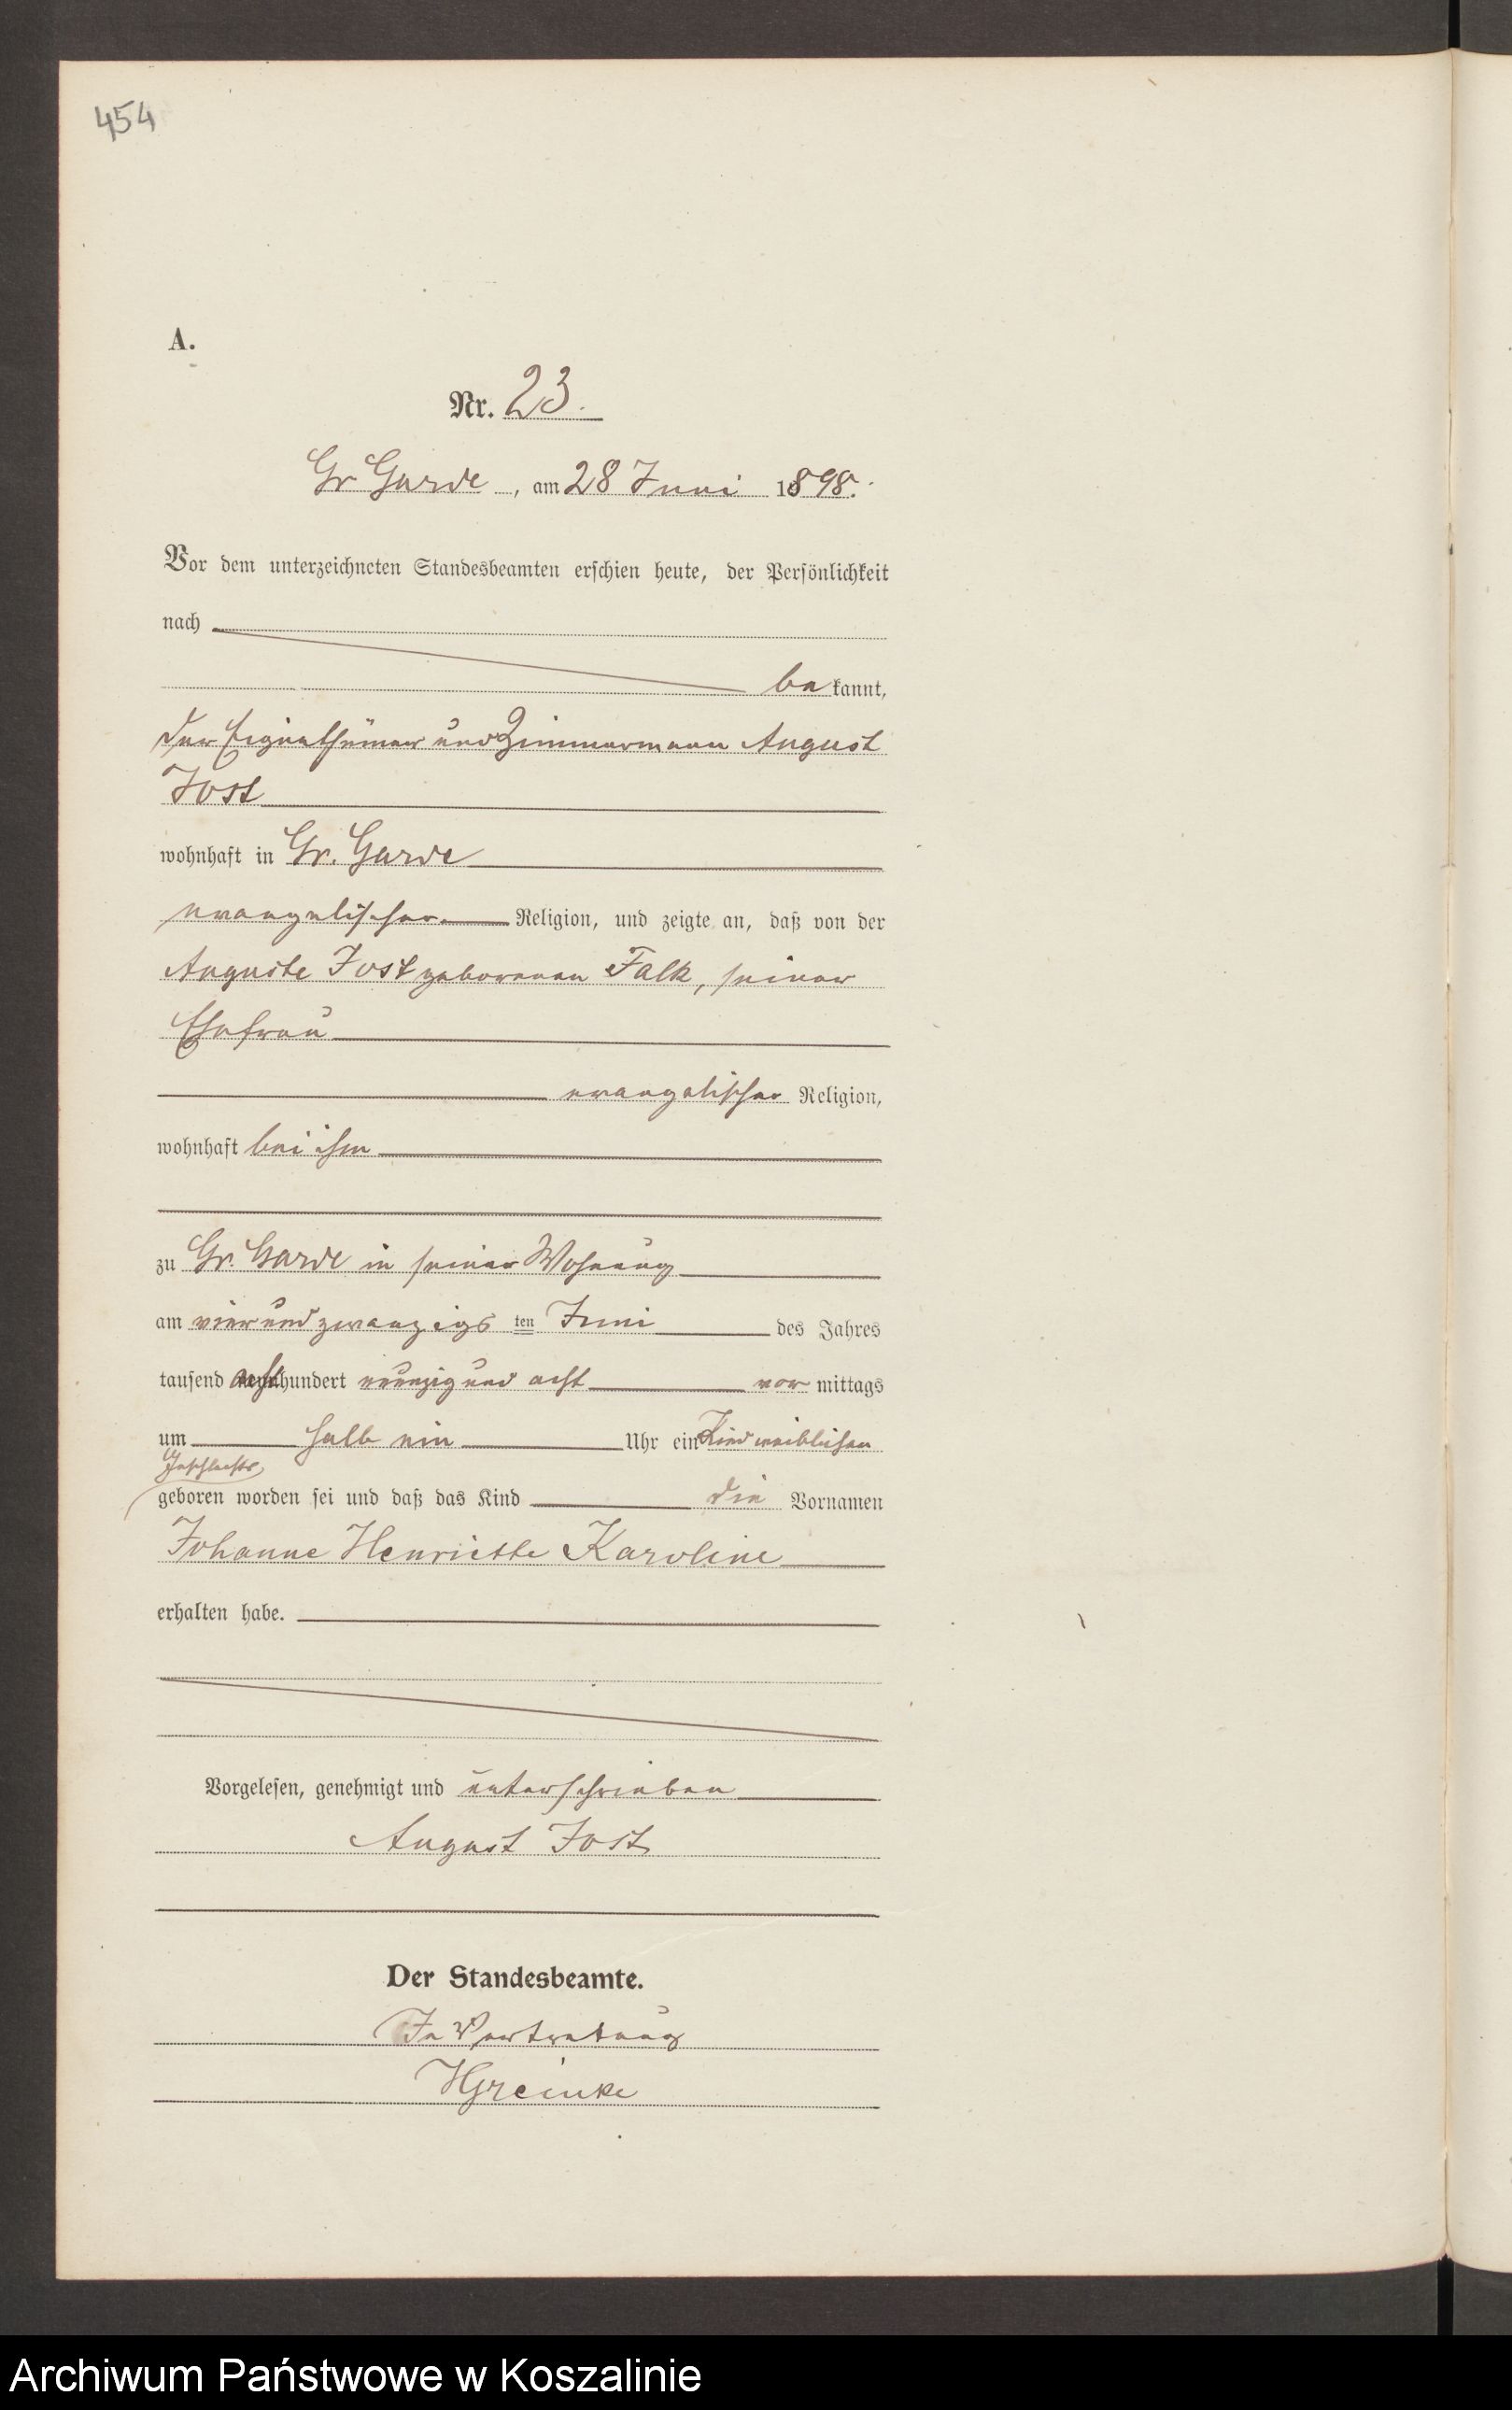 454
A.
Nr. 23.
Gr Garde, am 28 Juni 1898.
Vor dem unterzeichneten Standesbeamten erschien heute, der Persönlichkeit
nach
bekannt,
der Eigenthümer und Zimmermann August
Jost
wohnhaft in Gr. Garde
evangelischer Religion, und zeigte an, daß von der
Auguste Jost geborenen Falk, seiner
Ehefrau
evangelischer Religion,
wohnhaft bei ihm
zu Gr. Garde in seiner Wohnung
am vierundzwanzigsten Juni des Jahres
tausend achthundert neunzig und acht vormittags
um halb ein Uhr ein Kind weiblichen
Geschlechts
geboren worden sei und daß das Kind die Vornamen
Johanne Henriette Karoline
erhalten habe.
Vorgelesen, genehmigt und unterschrieben
August Jost
Der Standesbeamte.
In Vertretung
HGreinke
Archiwum Państwowe w Koszalinie